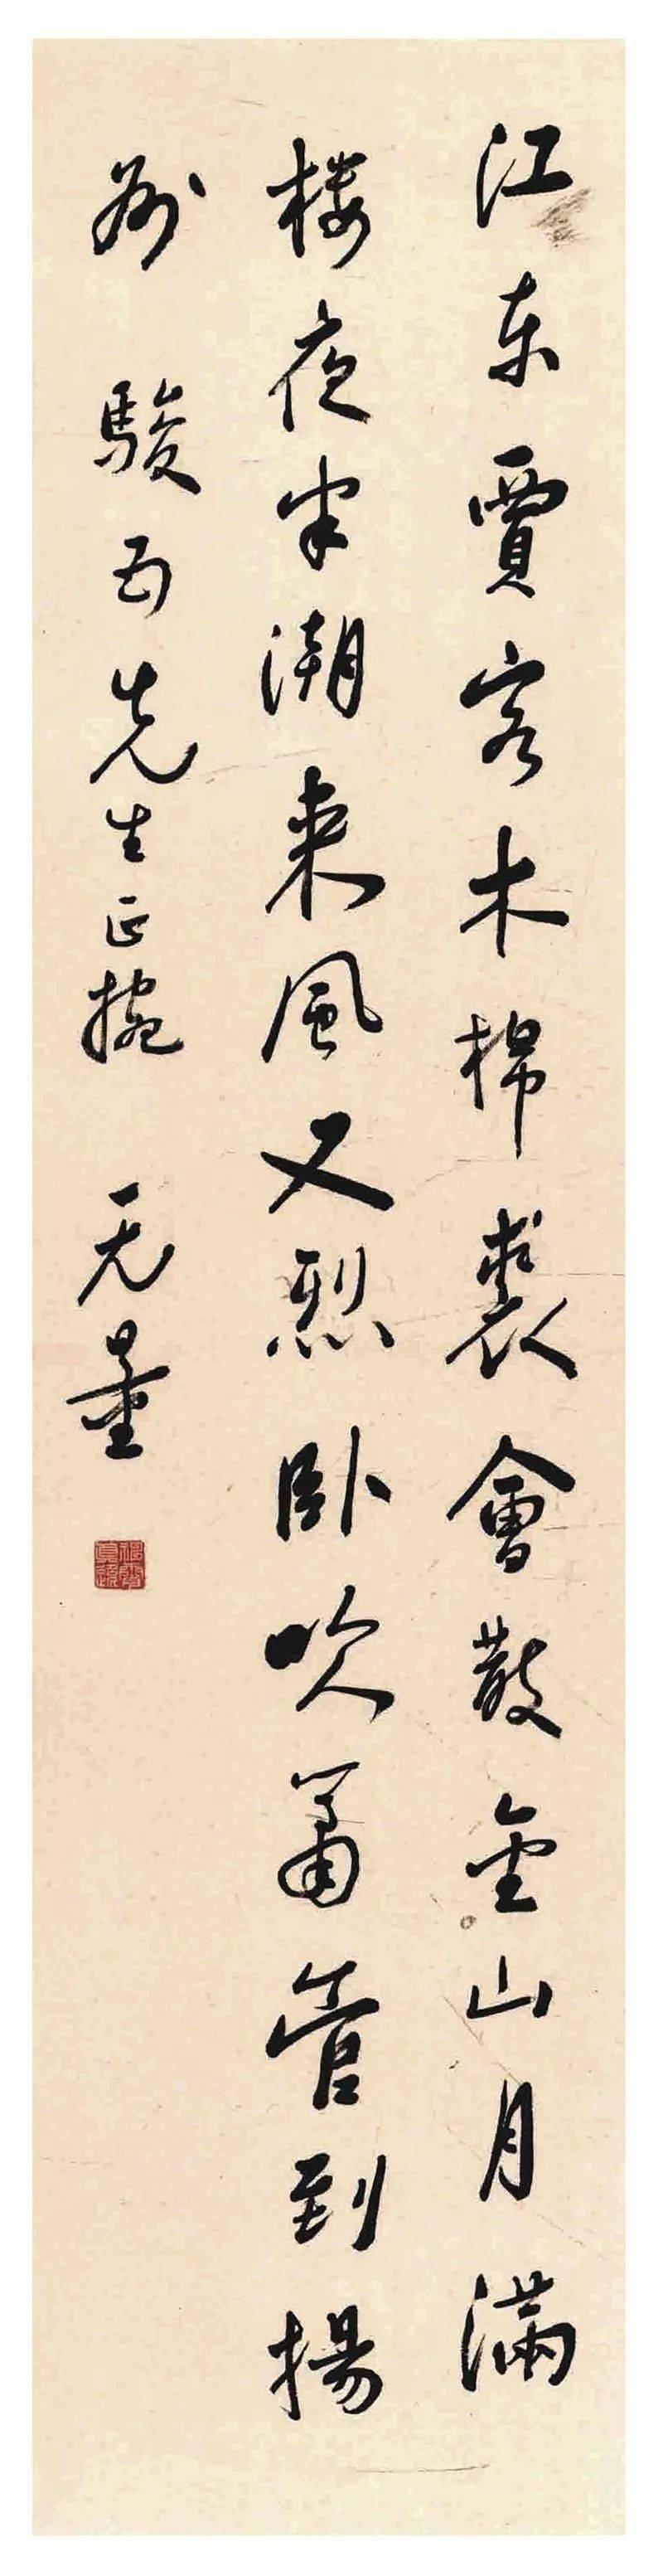 江東賈客木棉裘會散金山月滿
樓夜半潮来風又烈卧吹簫管到揚
州 駿五先生正捥 无量